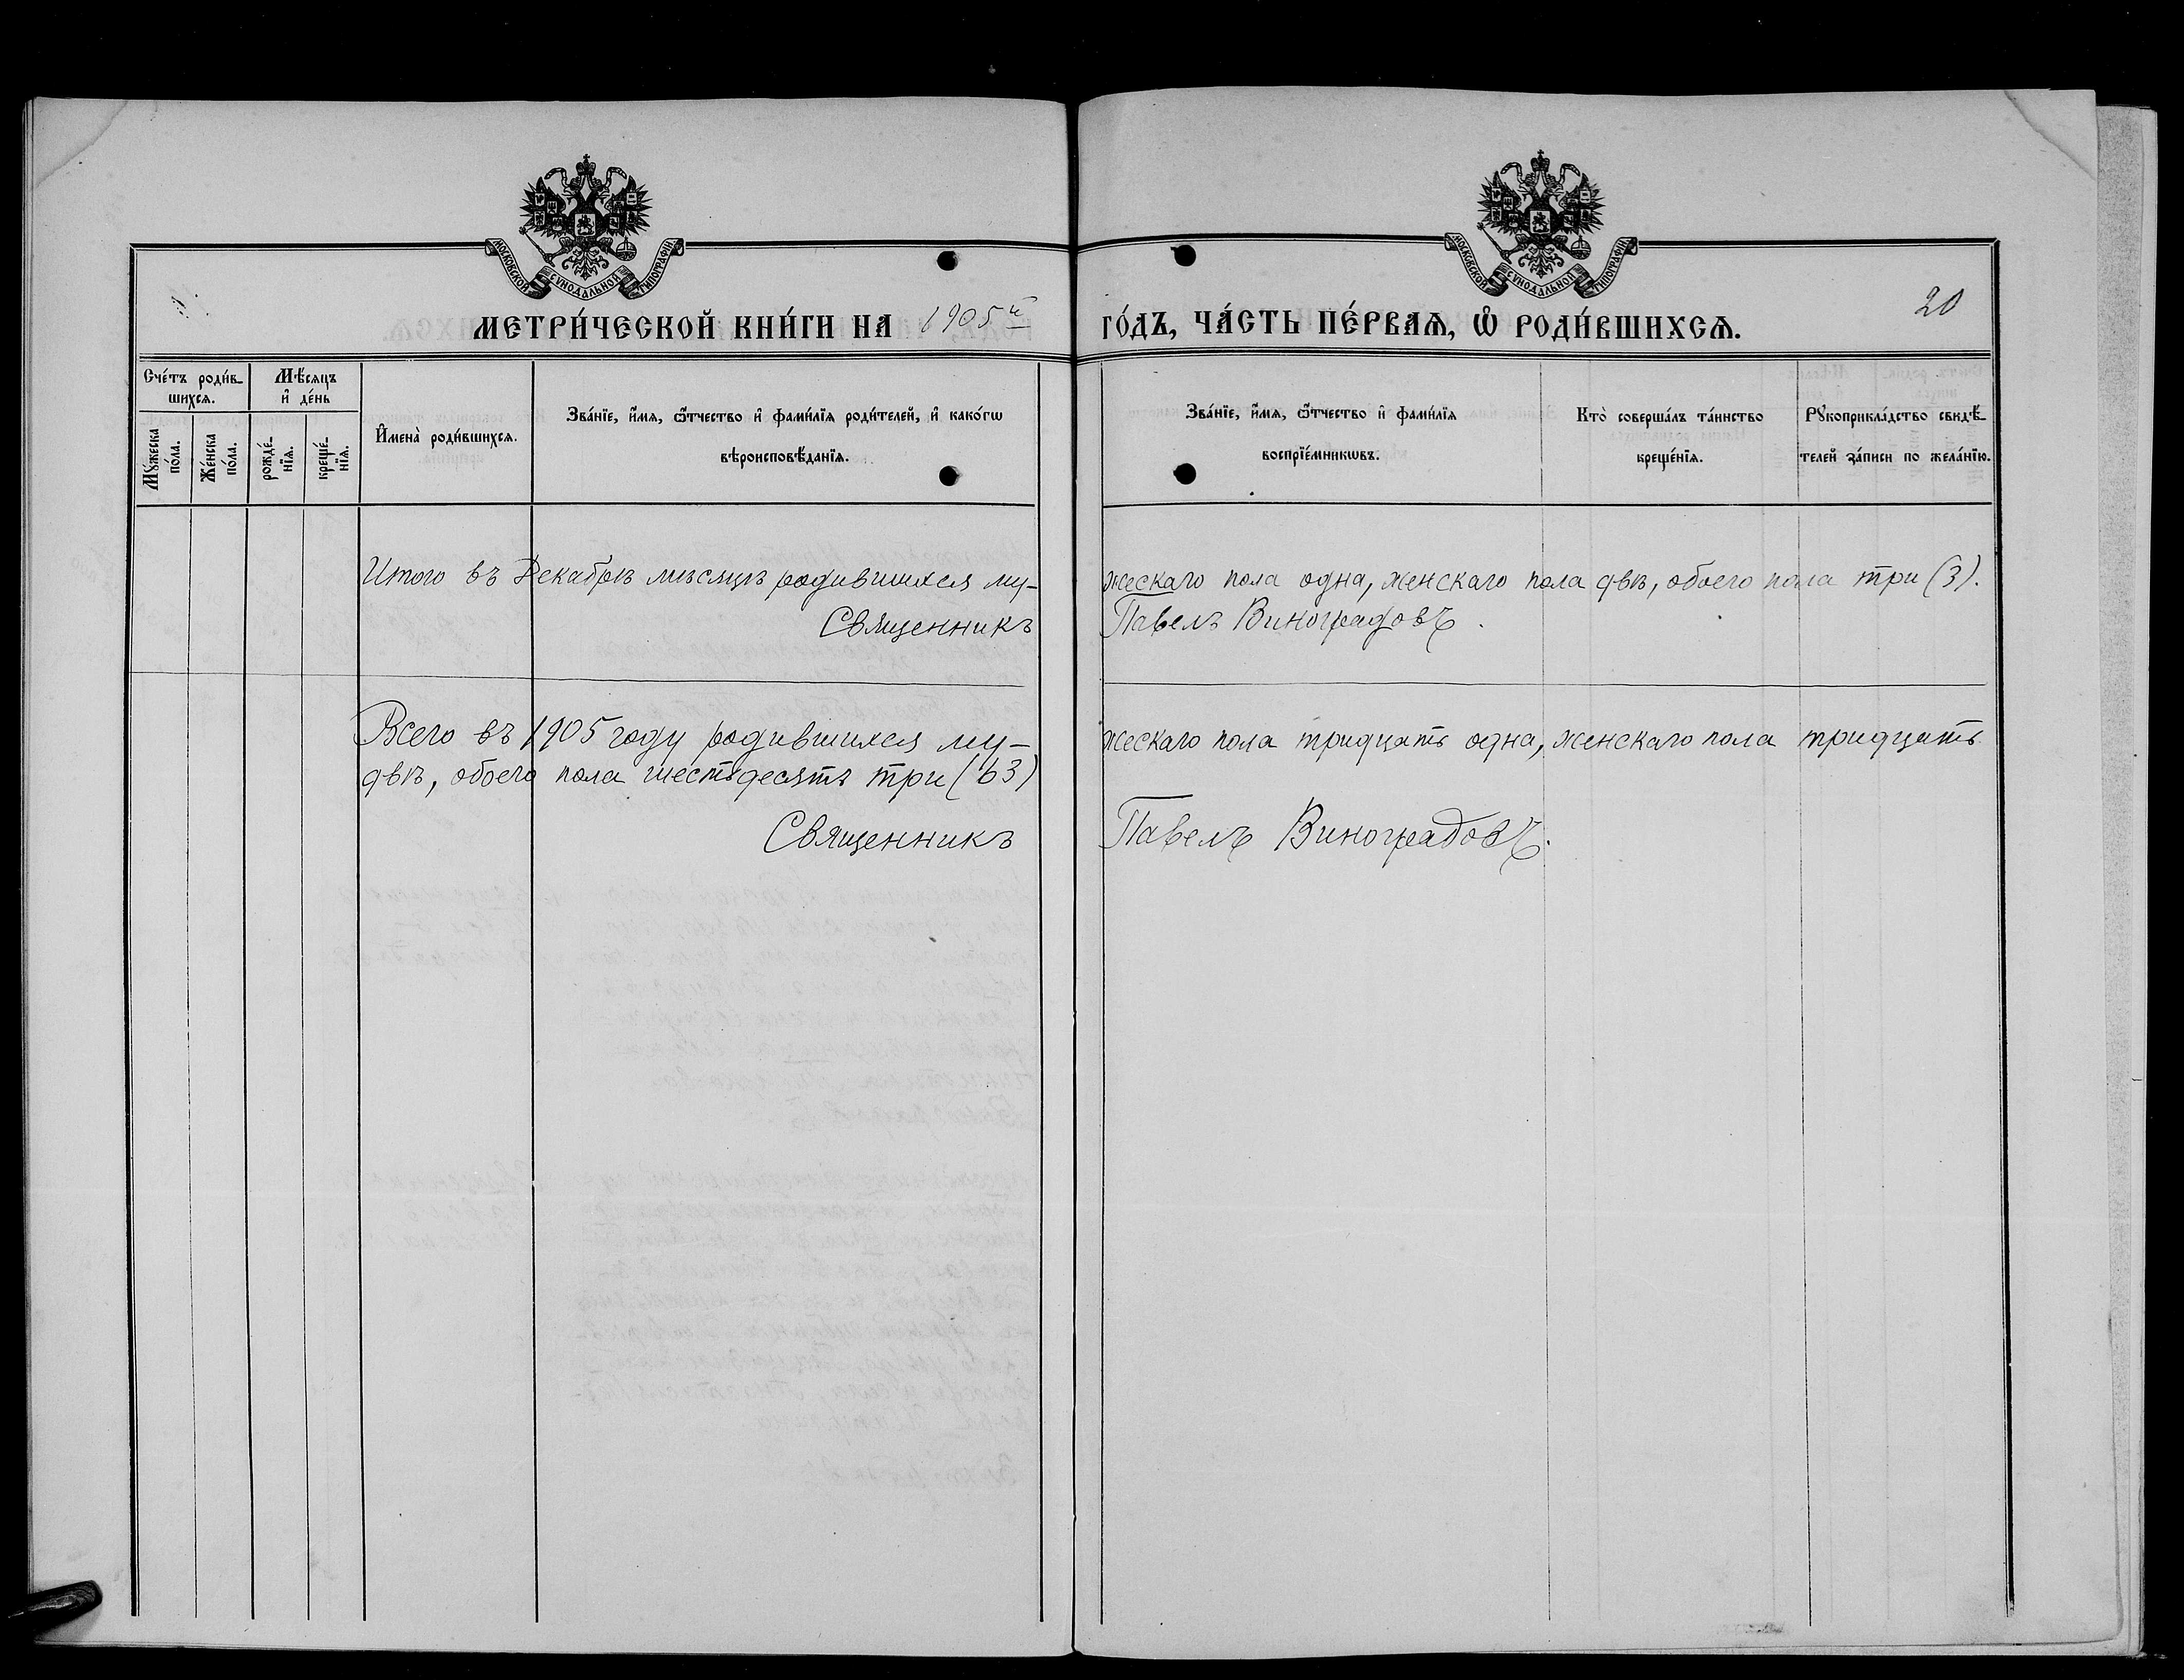 МОСКОВСКОЙ СѴНОДАЛЬНОЙ ТИПОГРАФІИ
МОСКОВСКОЙ СѴНОДАЛЬНОЙ ТИПОГРАФІИ
МЕТРИ́ЧЕСКОЙ КНИ́ГИ НА 1905 й ГО́ДЪ, ЧА́СТЬ ПЕ́РВАѦ, Ѡ҆ РОДИ́ВШИХСѦ.
20
Сче́тъ роди́в-
шихсѧ.
Мѣ́сяцъ
и҆ де́нь
Мꙋ́жеска
по́ла.
Же́нска
по́ла.
рожде́-
нїѧ.
креще́-
нїѧ.
И҆мена̀ роди́вшихсѧ.
Зва́нїе, и҆́мѧ, ѻ҆́тчество и҆ фами́лїѧ роди́телей, и҆ како́гѡ
вѣроисповѣ́данїѧ.
Зва́нїе, и҆́мѧ, ѻ҆́тчество и҆ фами́лїѧ
воспрїе́мникѡвъ.
Кто̀ соверша́лъ та́инство
креще́нїѧ.
Рꙋкоприкла́дство свидѣ́-
телей за́писи по жела́нїю.
Итого въ Декабрѣ мѣсяцѣ родившихся му- жескаго пола одна, женскаго пола двѣ, обоего пола три (3).
Священникъ Павелъ Виноградовъ.
Всего въ 1905 году родившихся му- жескаго пола тридцать одна, женскаго пола тридцать
двѣ, обоего пола шестьдесятъ три (63)
Священникъ Павелъ Виноградовъ.